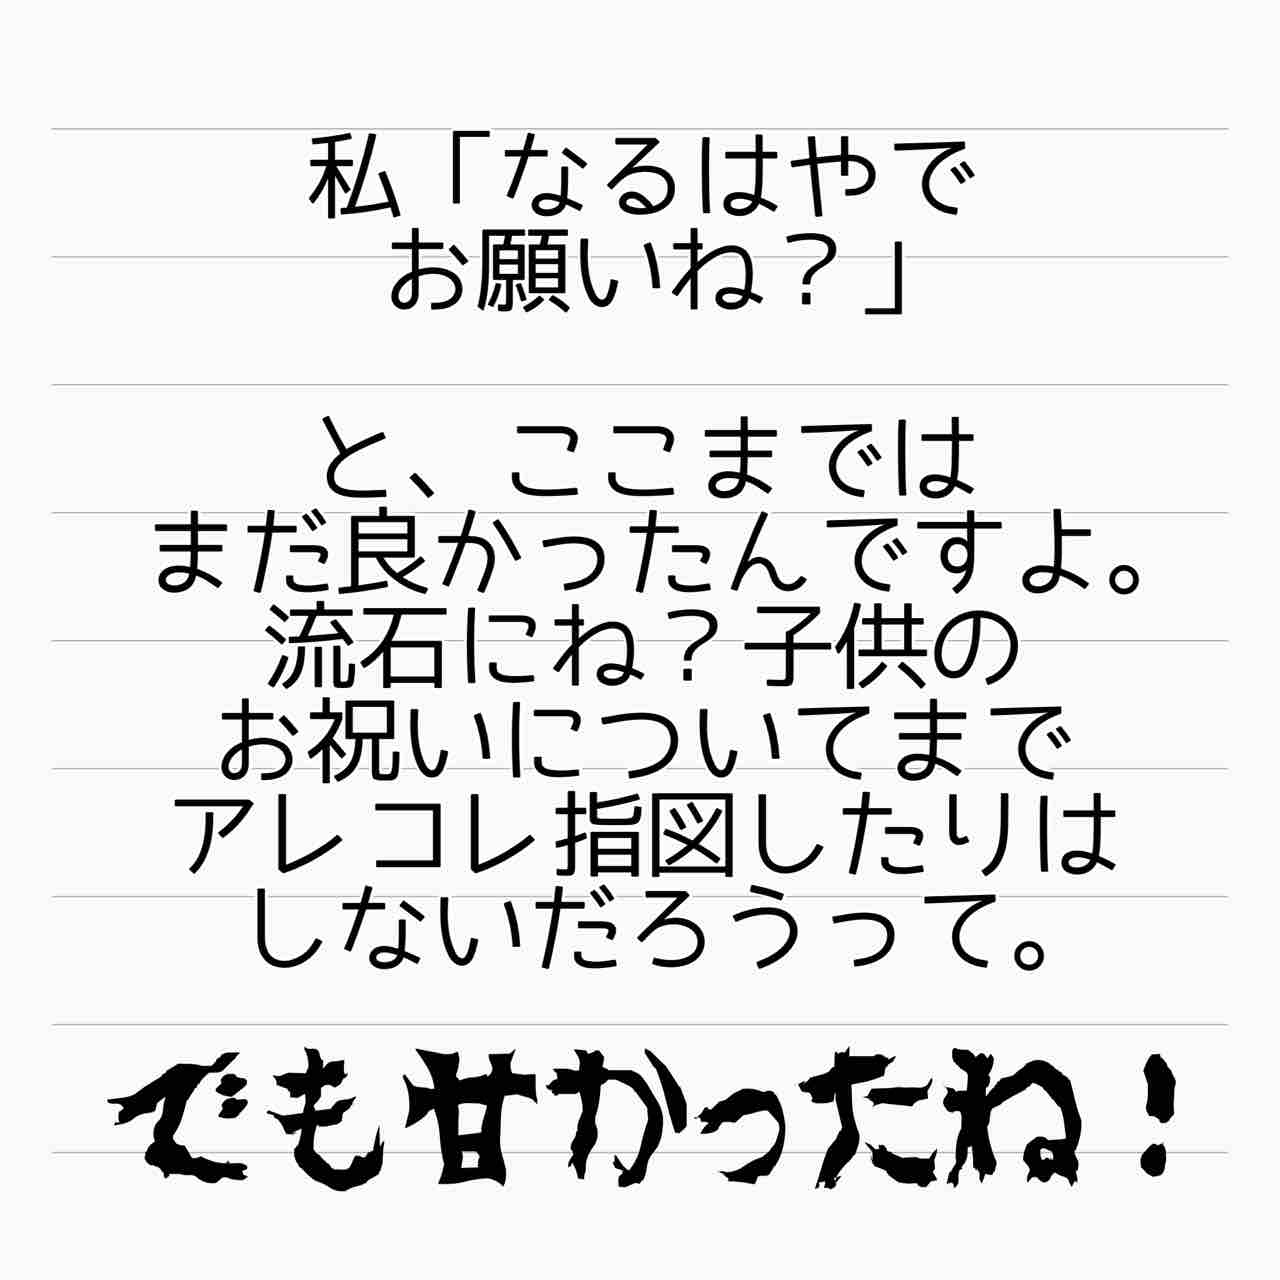 私「なるはやで
お願いね？」
と、ここまでは
まだ良かったんですよ。
流石にね？子供の
お祝いについてまで
アレコレ指図したりは
しないだろうって。
でも甘かったね！